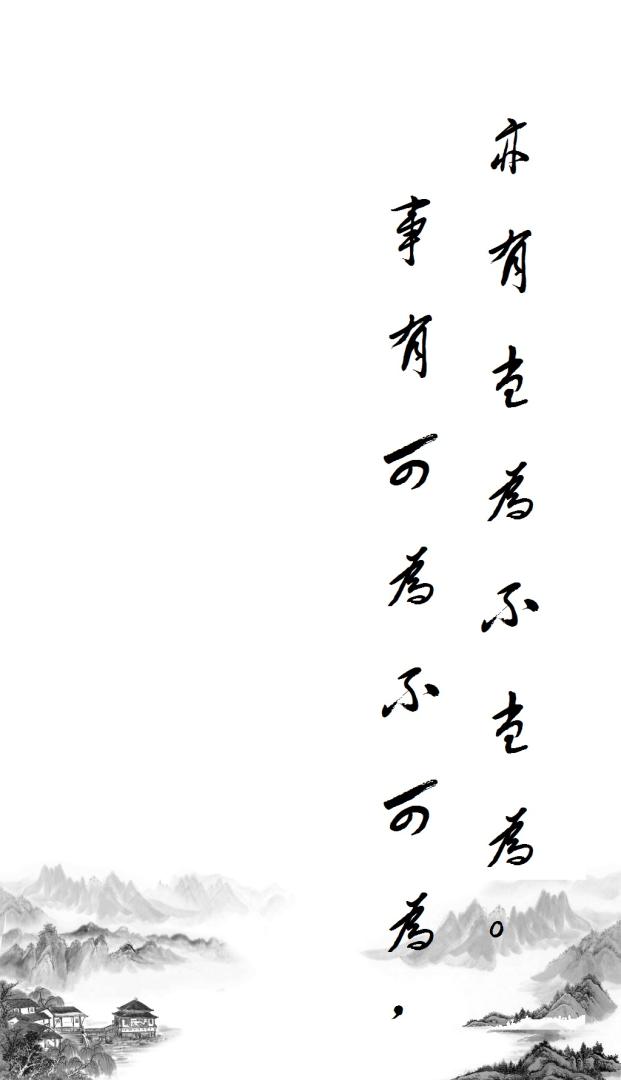 事有可為不可為，
亦有當為不當為。